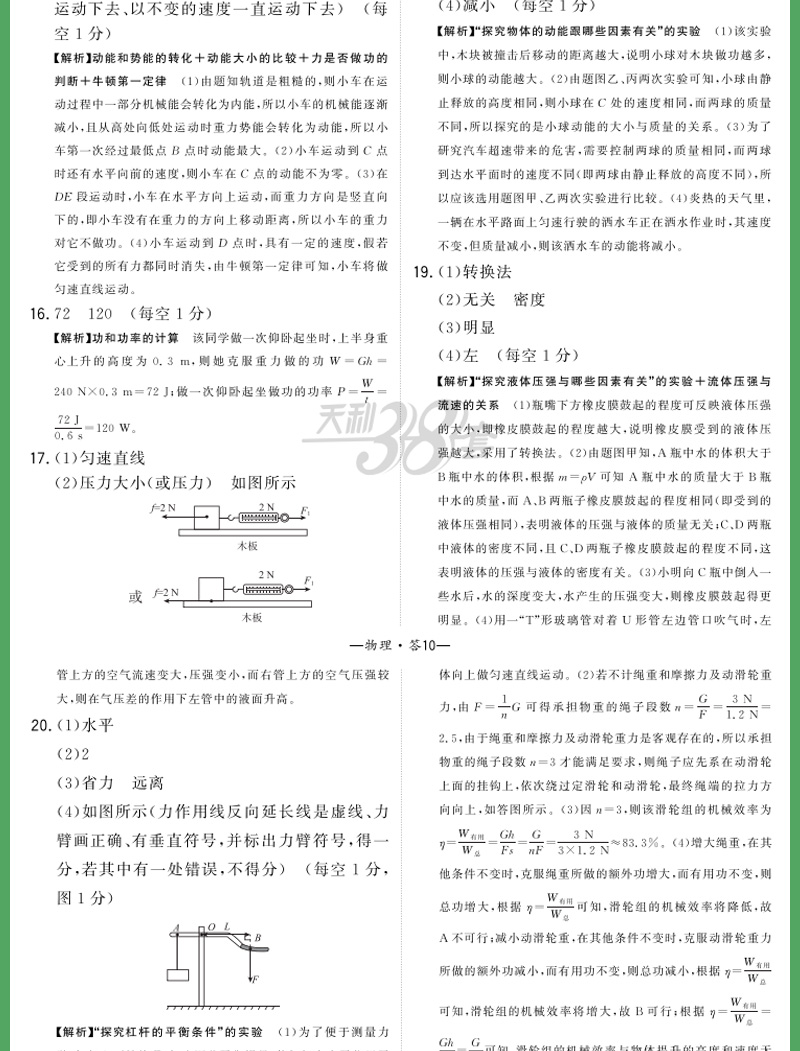 运动下去、以不变的速度一直运动下去） （每
空 1 分）
【解析】动能和势能的转化＋动能大小的比较＋力是否做功的
判断＋牛顿第一定律 （1）由题知轨道是粗糙的，则小车在运
动过程中一部分机械能会转化为内能，所以小车的机械能逐渐
减小，且从高处向低处运动时重力势能会转化为动能，所以小
车第一次经过最低点 B 点时动能最大。（2）小车运动到 C 点
时还有水平向前的速度，则小车在 C 点的动能不为零。（3）在
DE 段运动时，小车在水平方向上运动，而重力方向是竖直向
下的，即小车没有在重力的方向上移动距离，所以小车的重力
对它不做功。（4）小车运动到 D 点时，具有一定的速度，假若
它受到的所有力都同时消失，由牛顿第一定律可知，小车将做
匀速直线运动。
16. 72 120 （每空 1 分）
【解析】功和功率的计算 该同学做一次仰卧起坐时，上半身重
心上升的高度为 0. 3 m，则她克服重力做的功 W ＝ Gh ＝
240 N×0. 3 m＝72 J；做一次仰卧起坐做功的功率 P＝W/t＝
72 J/0. 6 s＝120 W。
17.（1）匀速直线
（2）压力大小（或压力） 如图所示
f=2 N 2 N F1
木板
或 f=2 N 2 N F1
木板
（4）减小 （每空 1 分）
【解析】“探究物体的动能跟哪些因素有关”的实验 （1）该实验
中，木块被撞击后移动的距离越大，说明小球对木块做功越多，
则小球的动能越大。（2）由题图乙、丙两次实验可知，小球由静
止释放的高度相同，则小球在 C 处的速度相同，而两球的质量
不同，所以探究的是小球动能的大小与质量的关系。（3）为了
研究汽车超速带来的危害，需要控制两球的质量相同，而两球
到达水平面时的速度不同（即两球由静止释放的高度不同），所
以应该选用题图甲、乙两次实验进行比较。（4）炎热的天气里，
一辆在水平路面上匀速行驶的洒水车正在洒水作业时，其速度
不变，但质量减小，则该洒水车的动能将减小。
19.（1）转换法
（2）无关 密度
（3）明显
（4）左 （每空 1 分）
【解析】“探究液体压强与哪些因素有关”的实验＋流体压强与
流速的关系 （1）瓶嘴下方橡皮膜鼓起的程度可反映液体压强
的大小，即橡皮膜鼓起的程度越大，说明橡皮膜受到的液体压
强越大，采用了转换法。（2）由题图甲知，A 瓶中水的体积大于
B 瓶中水的体积，根据 m＝ρV 可知 A 瓶中水的质量大于 B 瓶
中水的质量，而 A、B 两瓶子橡皮膜鼓起的程度相同（即受到的
液体压强相同），表明液体的压强与液体的质量无关；C、D 两瓶
中液体的密度不同，且 C、D 两瓶子橡皮膜鼓起的程度不同，这
表明液体的压强与液体的密度有关。（3）小明向 C 瓶中倒入一
些水后，水的深度变大，水产生的压强变大，则橡皮膜鼓起得更
明显。（4）用一“T”形玻璃管对着 U 形管左边管口吹气时，左
天利38套
—物理·答10—
管上方的空气流速变大，压强变小，而右管上方的空气压强较
大，则在气压差的作用下左管中的液面升高。
20.（1）水平
（2）2
（3）省力 远离
（4）如图所示（力作用线反向延长线是虚线、力
臂画正确、有垂直符号，并标出力臂符号，得一
分，若其中有一处错误，不得分） （每空 1 分，
图 1 分）
A O L B
F
【解析】“探究杠杆的平衡条件”的实验 （1）为了便于测量力
体向上做匀速直线运动。（2）若不计绳重和摩擦力及动滑轮重
力，由 F＝1/n G 可得承担物重的绳子段数 n＝G/F＝3 N/1. 2 N＝
2. 5，由于绳重和摩擦力及动滑轮重力是客观存在的，所以承担
物重的绳子段数 n＝3 才能满足要求，则绳子应先系在动滑轮
上面的挂钩上，依次绕过定滑轮和动滑轮，最终绳端的拉力方
向向上，如答图所示。（3）因 n＝3，则该滑轮组的机械效率为
η＝W有用/W总＝Gh/Fs＝G/nF＝3 N/3×1. 2 N≈83. 3％。（4）增大绳重，在其
他条件不变时，克服绳重所做的额外功增大，而有用功不变，则
总功增大，根据 η＝W有用/W总 可知，滑轮组的机械效率将降低，故
A 不可行；减小动滑轮重，在其他条件不变时，克服动滑轮重力
所做的额外功减小，而有用功不变，则总功减小，根据 η＝W有用/W总
可知，滑轮组的机械效率将增大，故 B 可行；根据 η＝W有用/W总＝
Gh ＝ G 可知，滑轮组的机械效率与物体提升的高度和速度无